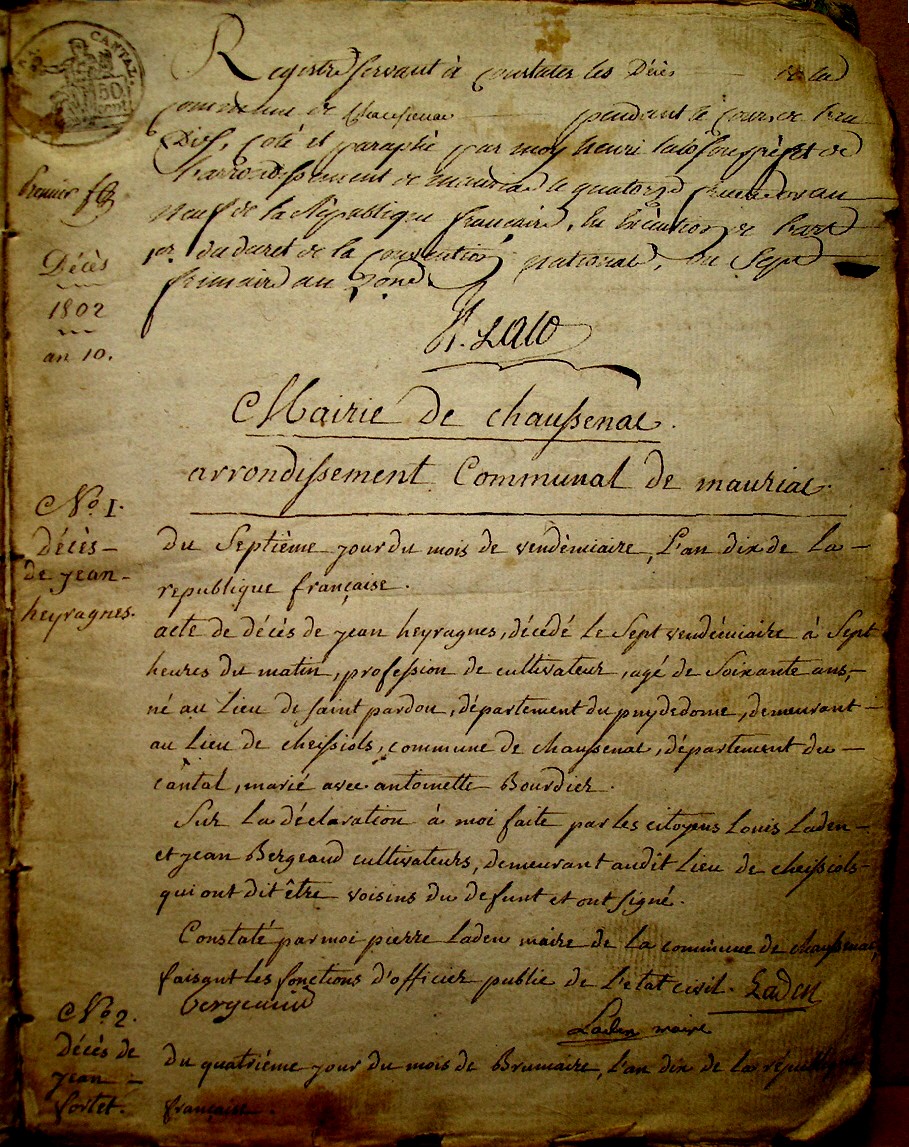 CANTAL
50
Registre servant à constater les Décès de la
commune de Chaussenac pendant le cours de l'an
Dix, coté et paraphé par moy henri Lalo souspréfet de
l'arrondissement de mauriac le quatorze fructidor an
neuf de la République française, en Exécution de l'art
1er du décret de la convention nationale, du Sept
frimaire an
H. Lalo
premier
Décès
1802
an 10.
Mairie de chaussenac.
arrondissement Communal de mauriac.
No. 1.
décès
de jean
heyragnes.
du Septième jour du mois de vendémiaire, L'an dix de La
republique française.
acte de décès de jean heyragnes, décédé Le Sept vendémiaire à Sept
heures du matin, profession de cultivateur, agé de Soixante ans,
né au Lieu de saint pardou, département du puydedome, demeurant
au Lieu de cheissiols, commune de chaussenac, département du
cantal, marié avec antoinette Bourdier.
Sur La déclaration à moi faite par les citoyens Louis Laden
et jean Bergeaud cultivateurs, demeurant audit Lieu de cheissiols
qui ont dit être voisins du defunt et ont signé.
Constaté par moi pierre Laden maire de La commune de chaussenac,
faisant les fonctions d'officier public de L'état civil. Laden
bergeaud
Laden maire
No. 2.
décès de
jean
fortet.
du quatrième jour du mois de Brumaire, L'an dix de La république
française.